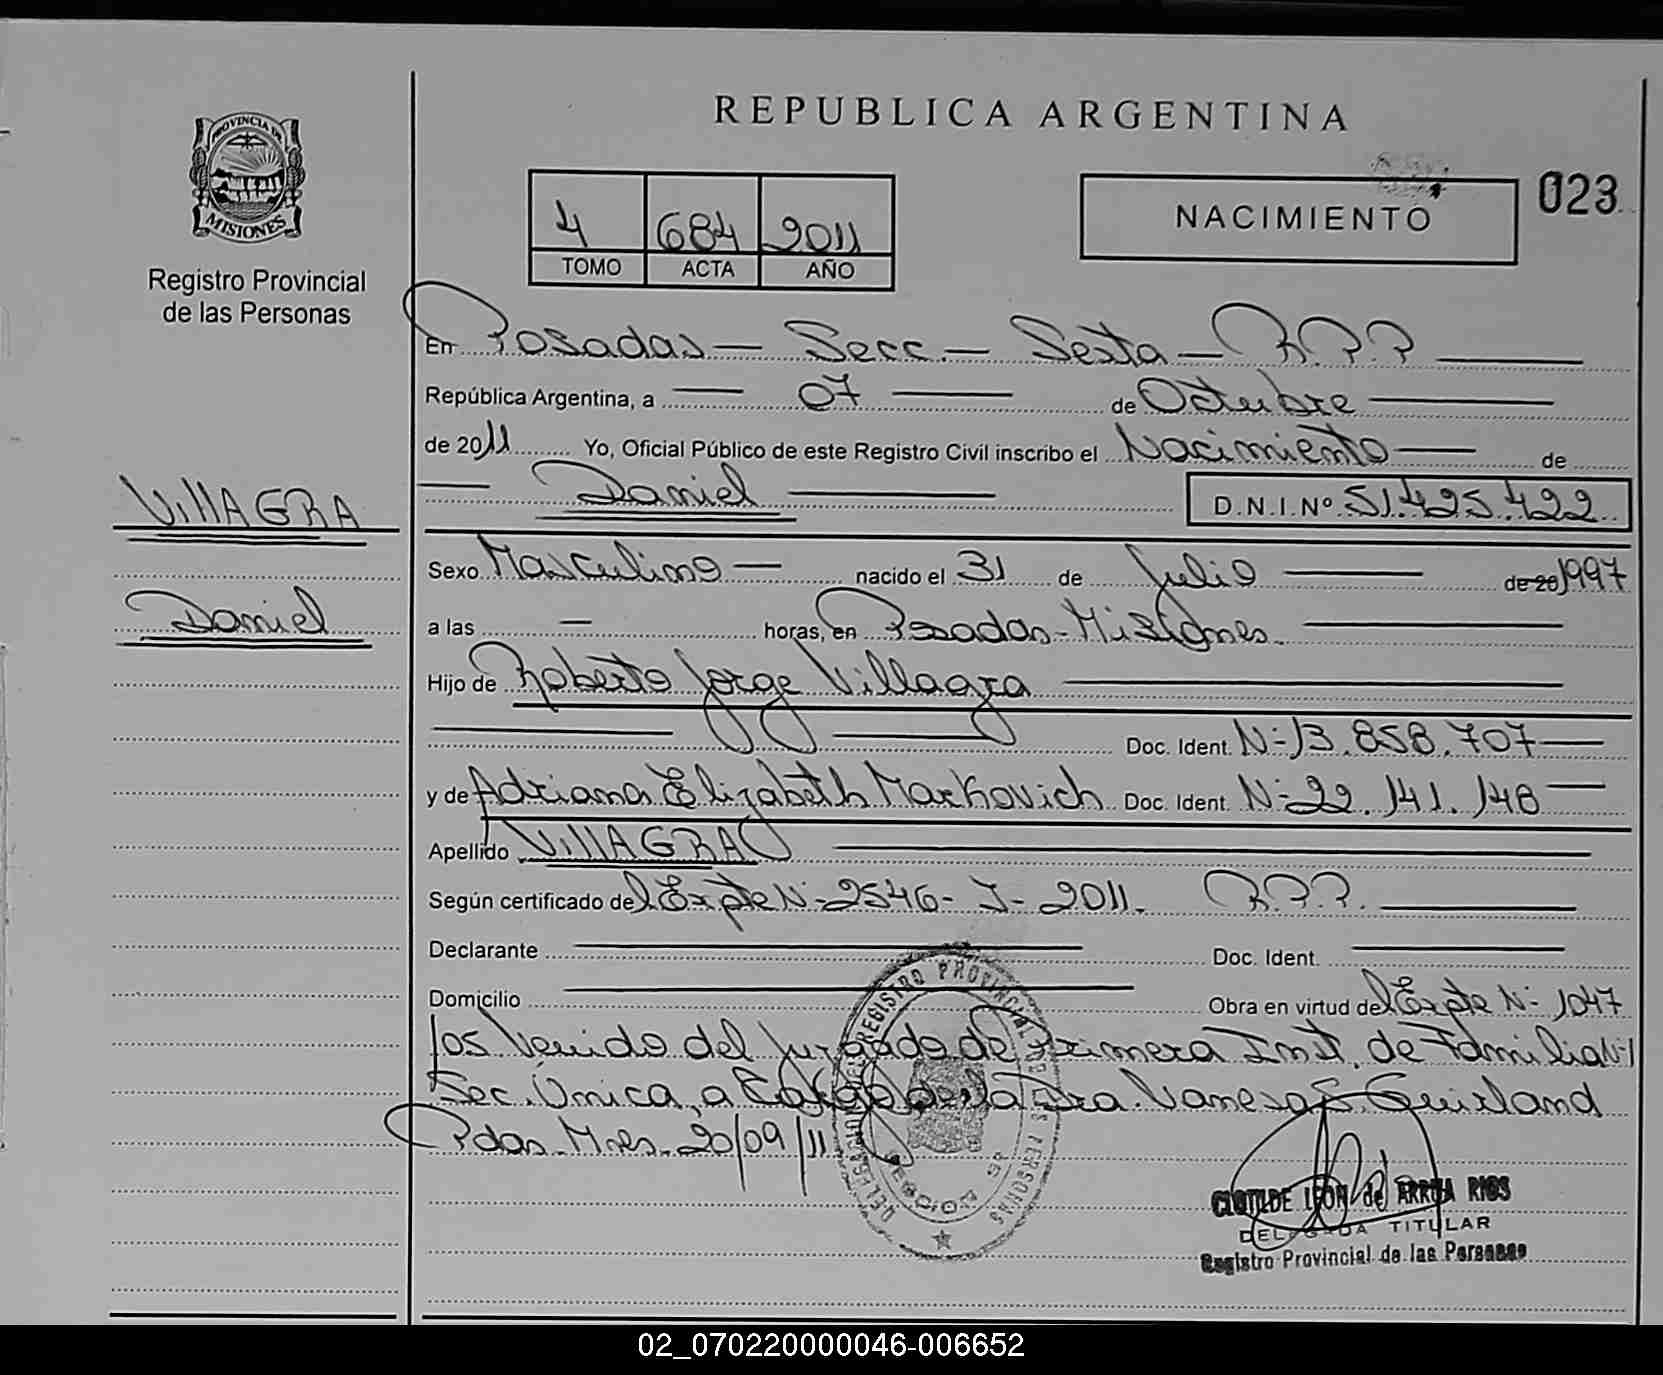 REPUBLICA ARGENTINA
PROVINCIA DE
MISIONES
Registro Provincial
de las Personas
4 684 2011
TOMO ACTA AÑO
NACIMIENTO
023
En Posadas — Secc — Sexta — R.P.P
República Argentina, a 07 de Octubre
de 2011 Yo, Oficial Público de este Registro Civil inscribo el Nacimiento de
Daniel D.N.I.Nº 51.425.422
VillAGRA
Daniel
Sexo Masculino nacido el 31 de Julio de 20 1997
a las — horas, en Posadas - Misiones.
Hijo de Roberto Jorge Villagra
Doc. Ident. N- 13.858.707
y de Adriana Elizabeth Markovich Doc. Ident. N- 22.141.148
Apellido VillAGRA
Según certificado del Expte N- 2546 - J - 2011. R.P.P.
Declarante Doc. Ident.
Domicilio Obra en virtud del Expte N- 1047
/05 Venido del Juzgado de Primera Inst. de Familia N-1
Sec. Única, a Cargo de la Dra. Vanesa S. Guirland
Pdas. Mnes. 20/09/11
REGISTRO PROVINCIAL DE LAS PERSONAS
CLOTILDE LEON de ARRUA RIOS
DELEGADA TITULAR
Registro Provincial de las Personas
02_070220000046-006652